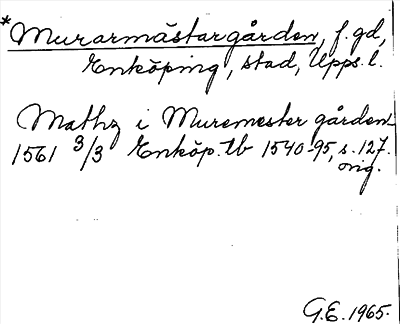 *Murarmästargården, f. gd,
Enköping, stad, Upps. l.
Mathz i Muremester gården
1561 3/3 Enköp. tb 1540-95, s. 127.
orig.
G.E. 1965.